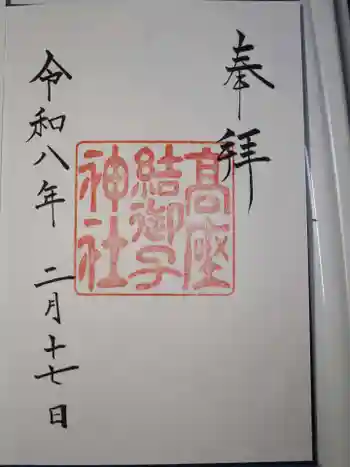 奉拝
髙座
結御子
神社
令和八年 二月十七日